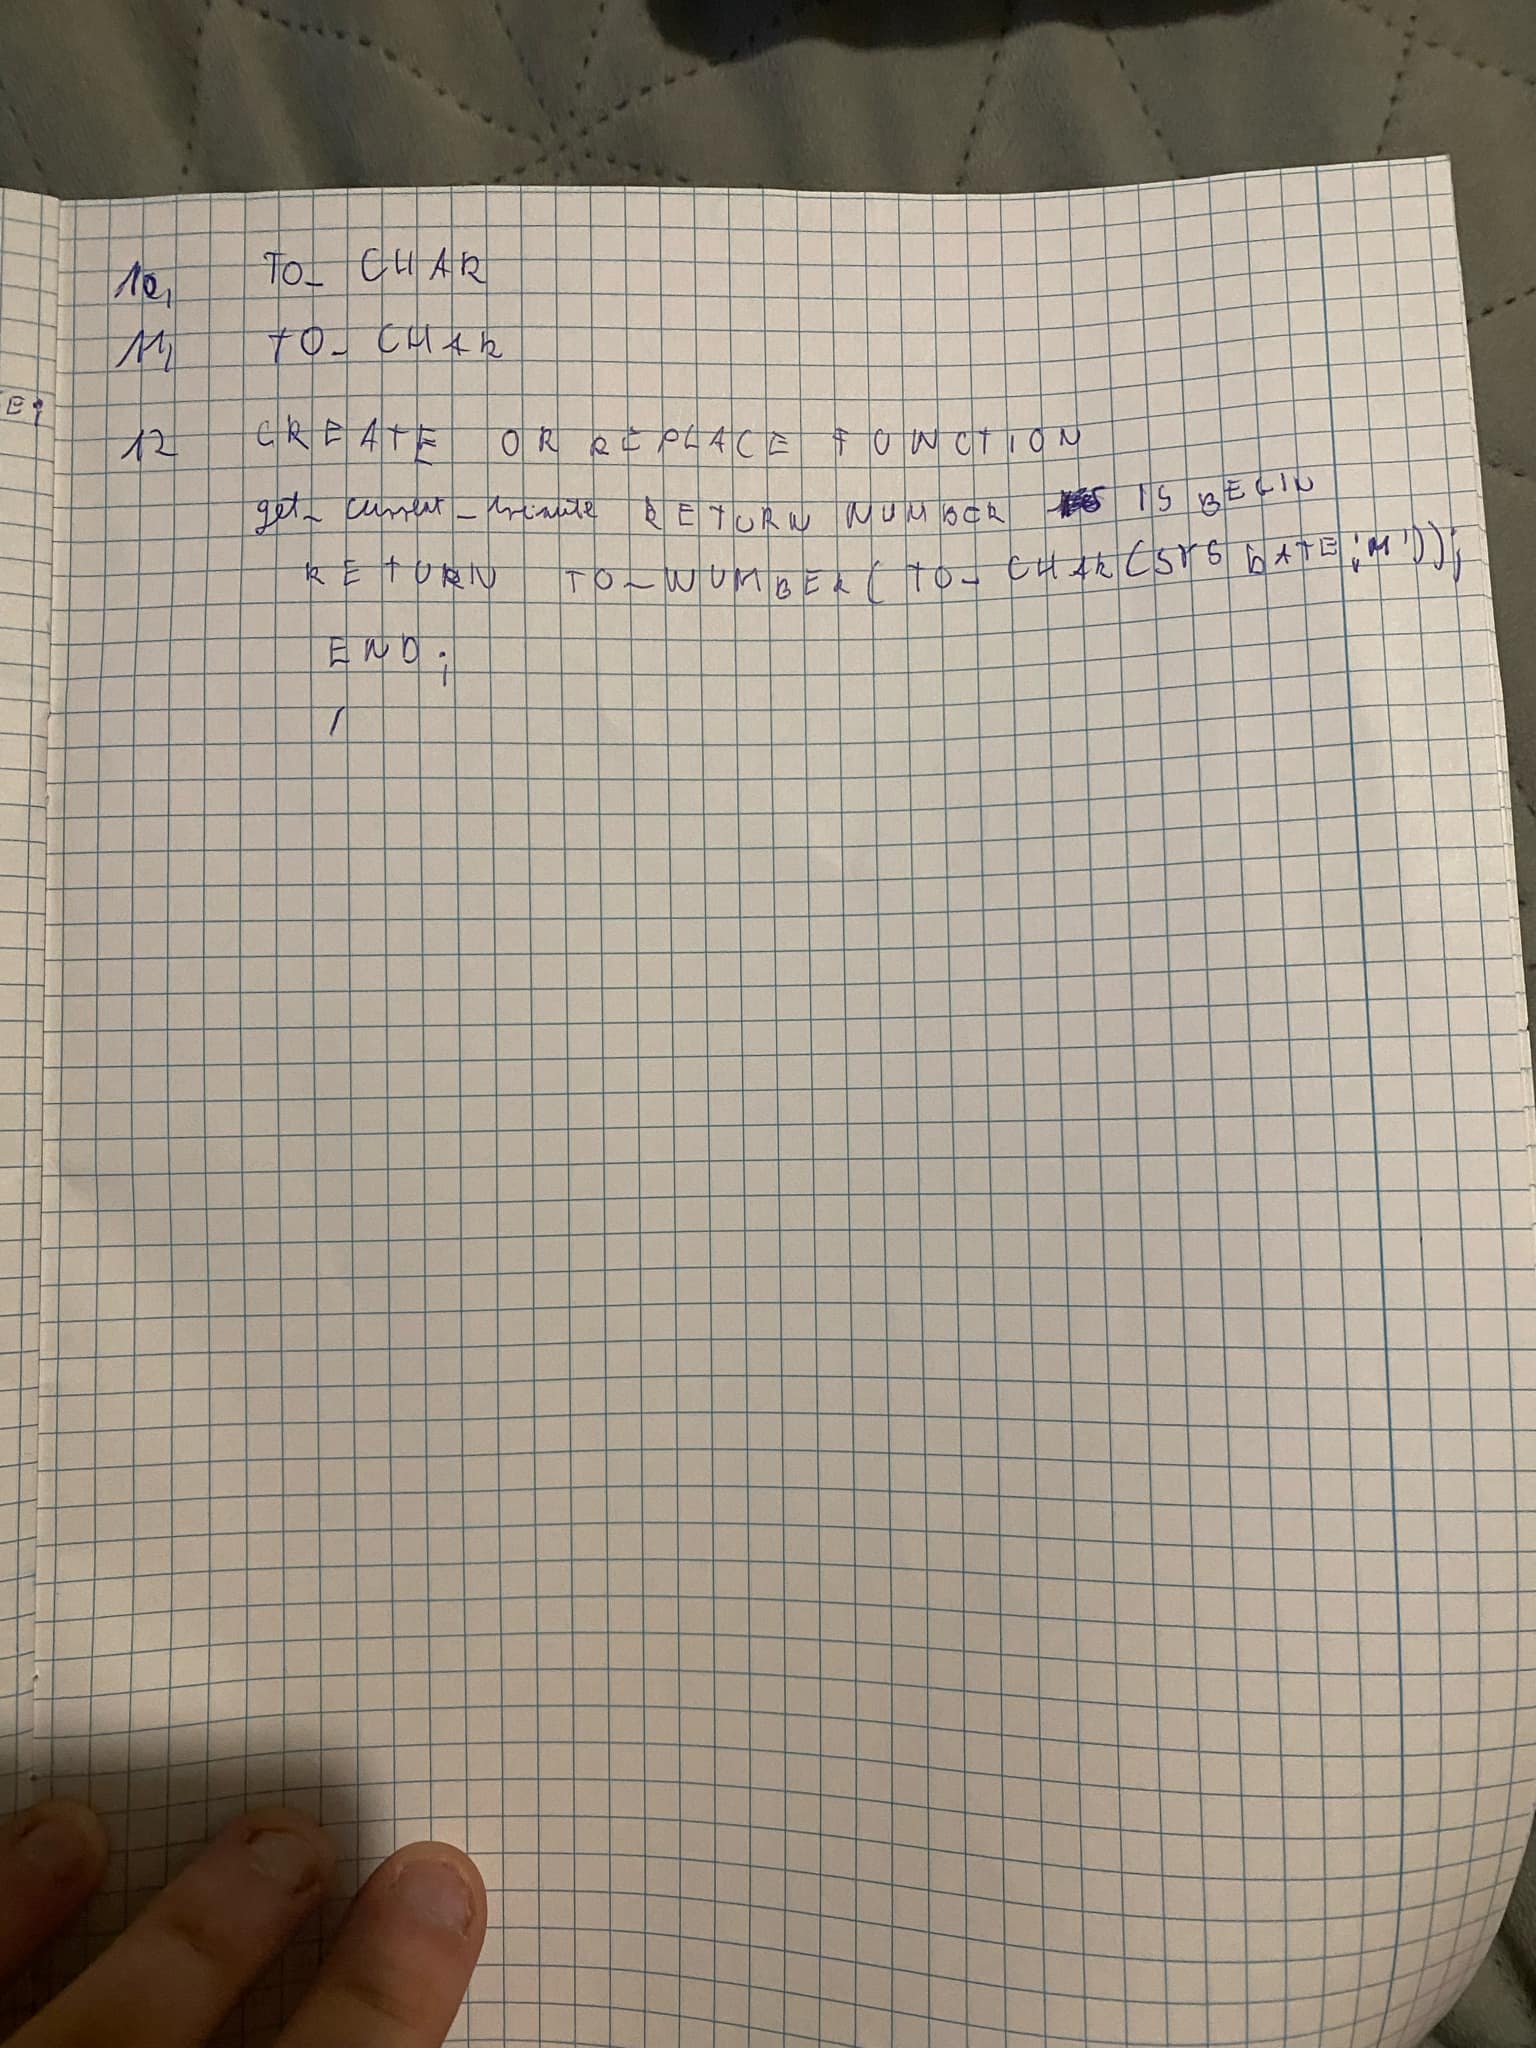 E;
10, TO_ CHAR
11, TO_ CHAR
12 CREATE OR REPLACE FUNCTION
get_ current_ minute RETURN NUMBER IS BEGIN
RETURN TO_NUMBER( TO_ CHAR(SYSDATE,'M'));
END;
/